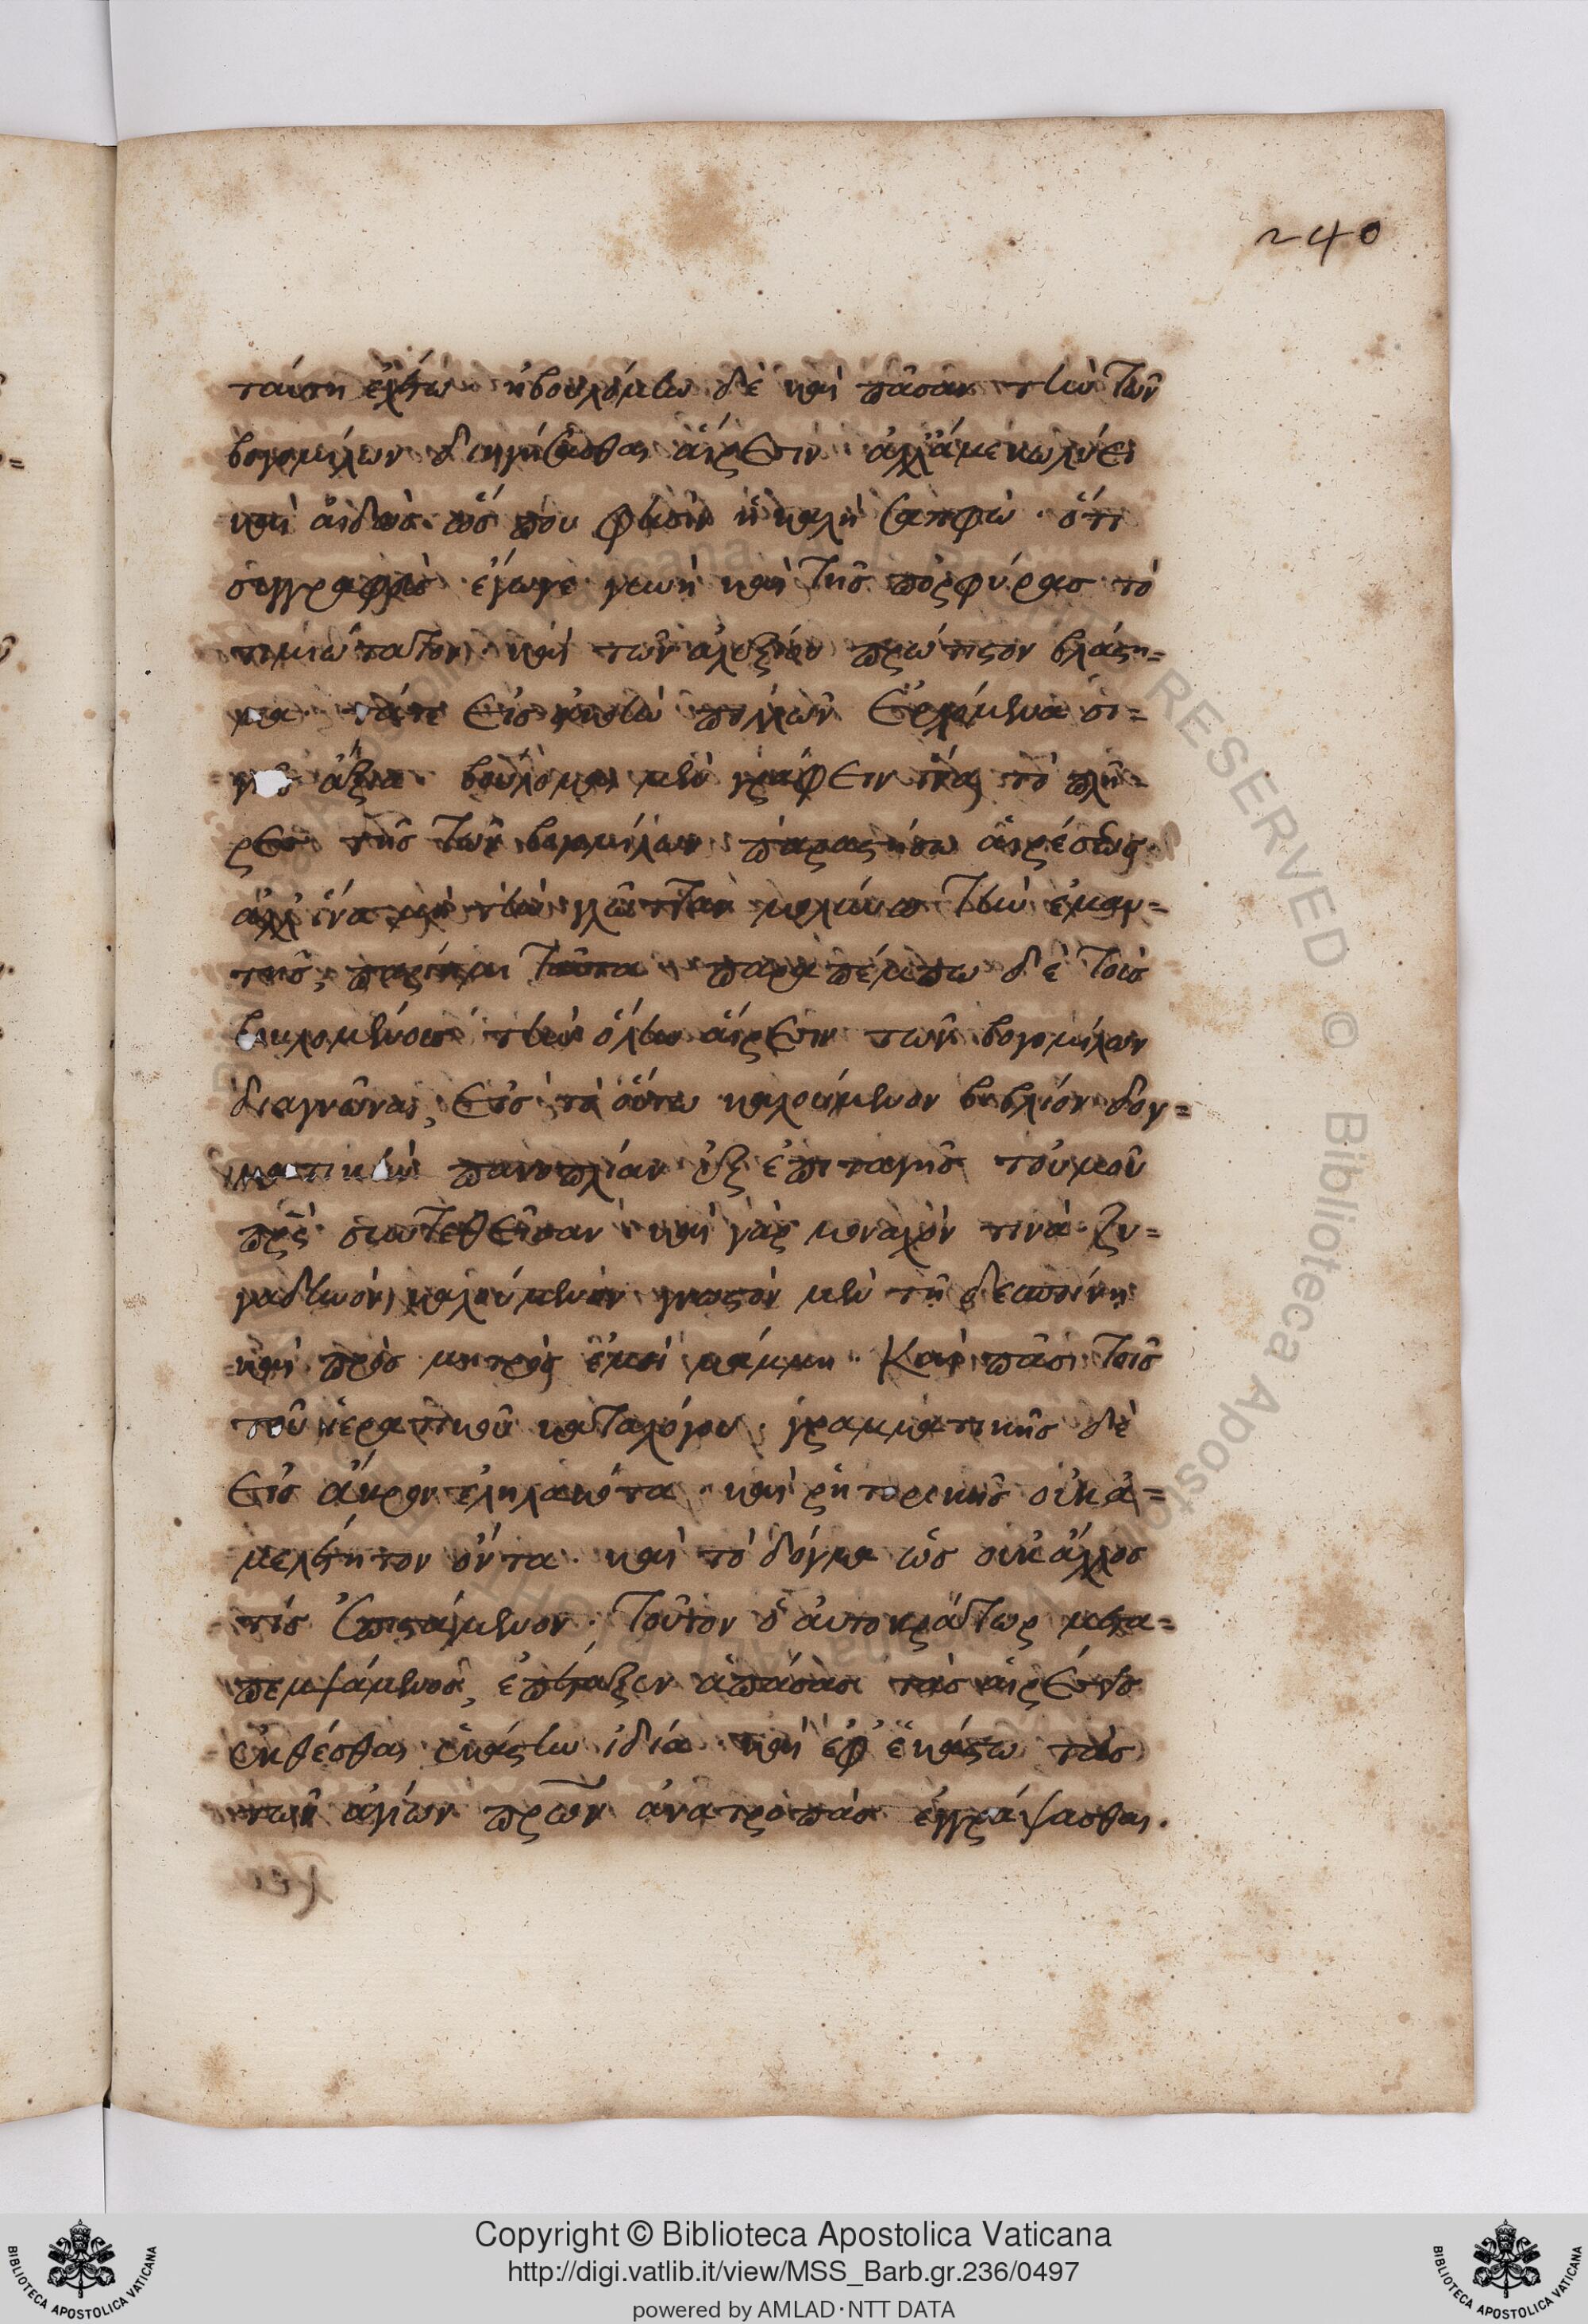 240
ταύτη ἐχέτω· ἠβουλόμην δὲ καὶ πᾶσαν τὴν τῶν
βογομίλων διηγήσασθαι αἵρεσιν· ἀλλά με κωλύει
καὶ αἰδὼς ὥς που φησὶν ἡ καλὴ σαπφώ· ὅτι
συγγραφεὺς ἔγωγε γυνὴ καὶ τῆς πορφύρας τὸ
τιμιώτατον· καὶ τῶν ἀλεξίου πρώτιστον βλάστη=
μα· τά τε εἰς ἀκοὴν πολλῶν ἐρχόμενα σι=
γῆς ἄξια· βούλομαι μὲν γράφειν ἵνα τὸ πλῆ=
ρες τῆς τῶν βογομίλων παραστήσω αἱρέσεως·
ἀλλ' ἵνα μὴ τὴν γλῶτταν μολύνω τὴν ἐμαυ=
τῆς, παρίημι ταῦτα· παραπέμπω δὲ τοὺς
βουλομένους τὴν ὅλην αἵρεσιν τῶν βογομίλων
διαγνῶναι, εἰς τὸ οὕτω καλούμενον βιβλίον δογ=
ματικὴν πανοπλίαν ἐξ ἐπιταγῆς τοὐμοῦ
πρς συντεθεῖσαν· καὶ γὰρ μοναχόν τινα ζυ=
γαδηνὸν καλούμενον γνωστὸν μὲν τῇ δεσποίνῃ
καὶ πρὸς μητρὸς ἐμοὶ μάμμῃ· Καὶ πᾶσι τοῖς
τοῦ ἱερατικοῦ καταλόγου· γραμματικῆς δὲ
εἰς ἄκρον ἐληλακότα· καὶ ῥητορικῆς οὐκ ἀ=
μελέτητον ὄντα· καὶ τὸ δόγμα ὡς οὐκ ἄλλος
τίς ἐπιστάμενον· τοῦτον ὁ αὐτοκράτωρ μετα=
πεμψάμενος, ἐπέταξεν ἁπάσας τὰς αἱρέσεις
ἐκθέσθαι ἑκάστην ἰδία· καὶ ἐφ' ἑκάστω τὰς
τῶν ἁγίων πρων ἀνατροπὰς ἐγγράψασθαι.
Copyright © Biblioteca Apostolica Vaticana
http://digi.vatlib.it/view/MSS_Barb.gr.236/0497
powered by AMLAD · NTT DATA
BIBLIOTECA APOSTOLICA VATICANA
BIBLIOTECA APOSTOLICA VATICANA